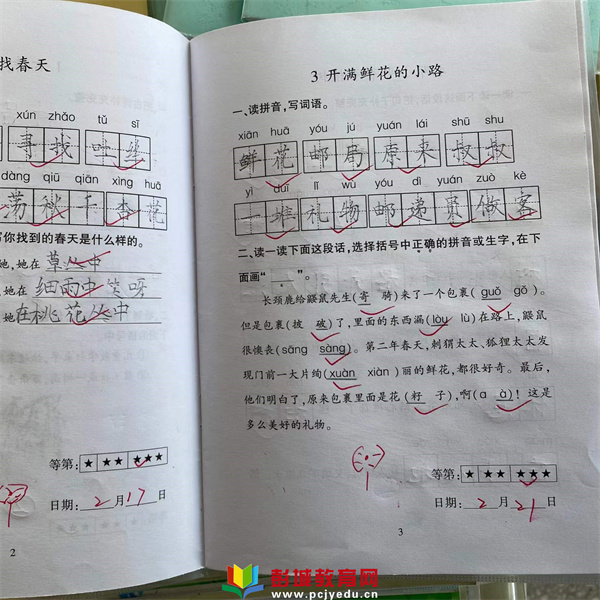 找春天
xún zhǎo tǔ sī
寻找 吐丝
dàng qiū qiān xìng huā
荡 秋千 杏花
写你找到的春天是什么样的。
她,她在草丛中
她在细雨中笑呀
她在桃花丛中
等第: ★ ★★ ★★★
日期: 2 月 17 日
2
3 开满鲜花的小路
一、读拼音,写词语。
xiān huā yóu jú yuán lái shū shu
鲜花 邮局 原来 叔叔
yì duī lǐ wù yóu dì yuán zuò kè
一堆 礼物 邮递员 做客
二、读一读下面这段话,选择括号中正确的拼音或生字,在下
面画“ ”。
长颈鹿给鼹鼠先生(寄 骑)来了一个包裹(guǒ gǒ)。
但是包裹(披 破)了,里面的东西漏(lòu lù)在路上,鼹鼠
很懊丧(sāng sàng)。第二年春天,刺猬太太、狐狸太太发
现门前一大片绚(xuàn xiàn)丽的鲜花,都很好奇。最后,
他们明白了,原来包裹里面是花(籽 子),啊(ɑ à)!这是
多么美好的礼物。
等第: ★ ★★ ★★★
日期: 2 月 21 日
3
彭城教育网
www.pcjyedu.cn